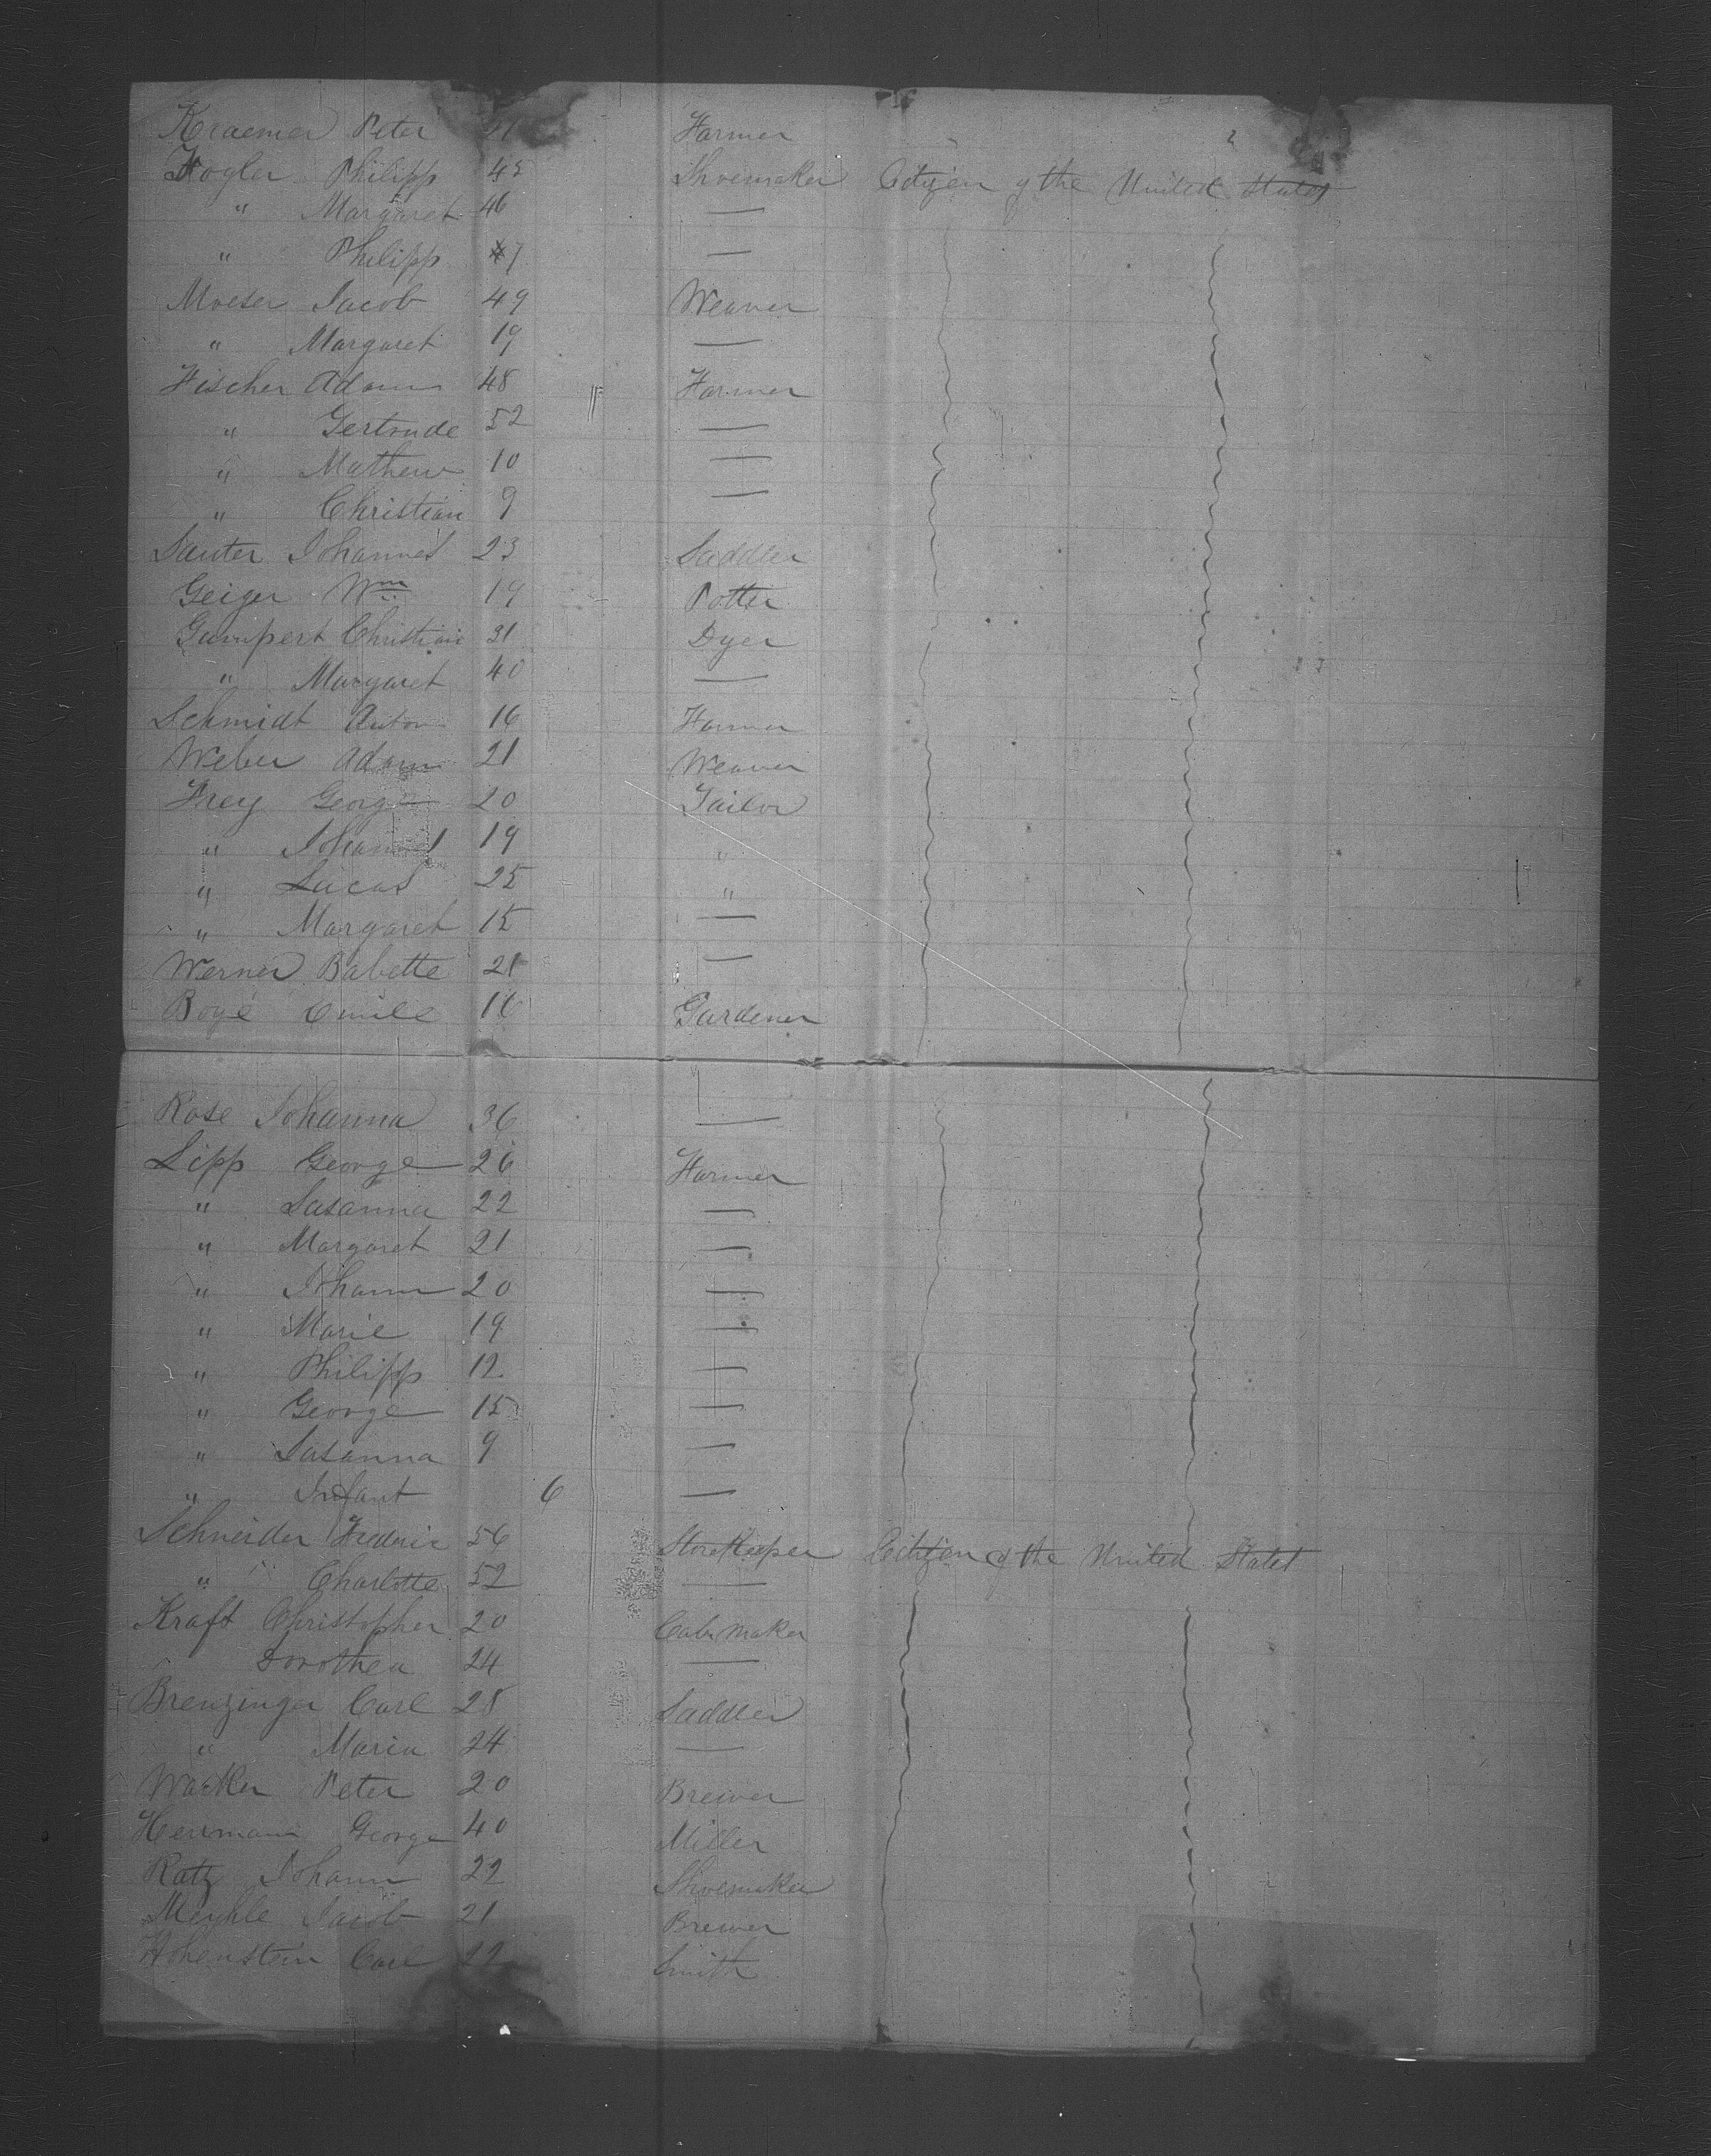 Kraemer Peter 21 Farmer
Fogler Philipp 45 Shoemaker Citizen of the United States
" Margaret 46 —
" Philipp 7 —
Moeser Jacob 49 Weaver
" Margaret 19 —
Fischer Adam 48 Farmer
" Gertrude 52 —
" Mathew 10 —
" Christian 9 —
Sauter Johannes 23 Saddler
Geiger Wm 19 Potter
Gumpert Christian 31 Dyer
" Margaret 40 —
Schmidt Anton 16 Farmer
Weber Adam 21 Weaver
Frey George 20 Tailor
" Johannes 19 "
" Lucas 25 "
" Margaret 15 —
Werner Babette 21 —
Boyé Emile 16 Gardener
Rose Johanna 36 —
Lipp George 26 Farmer
" Susanna 22 —
" Margaret 21 —
" Johann 20 —
" Marie 19 —
" Philipp 12 —
" George 15 —
" Susanna 9 —
" Infant 6 —
Schneider Frederic 56 Storekeeper Citizen of the United States
" Charlotte 52 —
Kraft Christopher 20 Cab. Maker
" Dorothea 24 —
Brenzinger Carl 28 Saddler
" Maria 24 —
Wacker Peter 20 Brewer
Herrmann George 40 Miller
Ratz Johann 22 Shoemaker
Jacob 21 Brewer
Hohenstein Carl 22 Smith